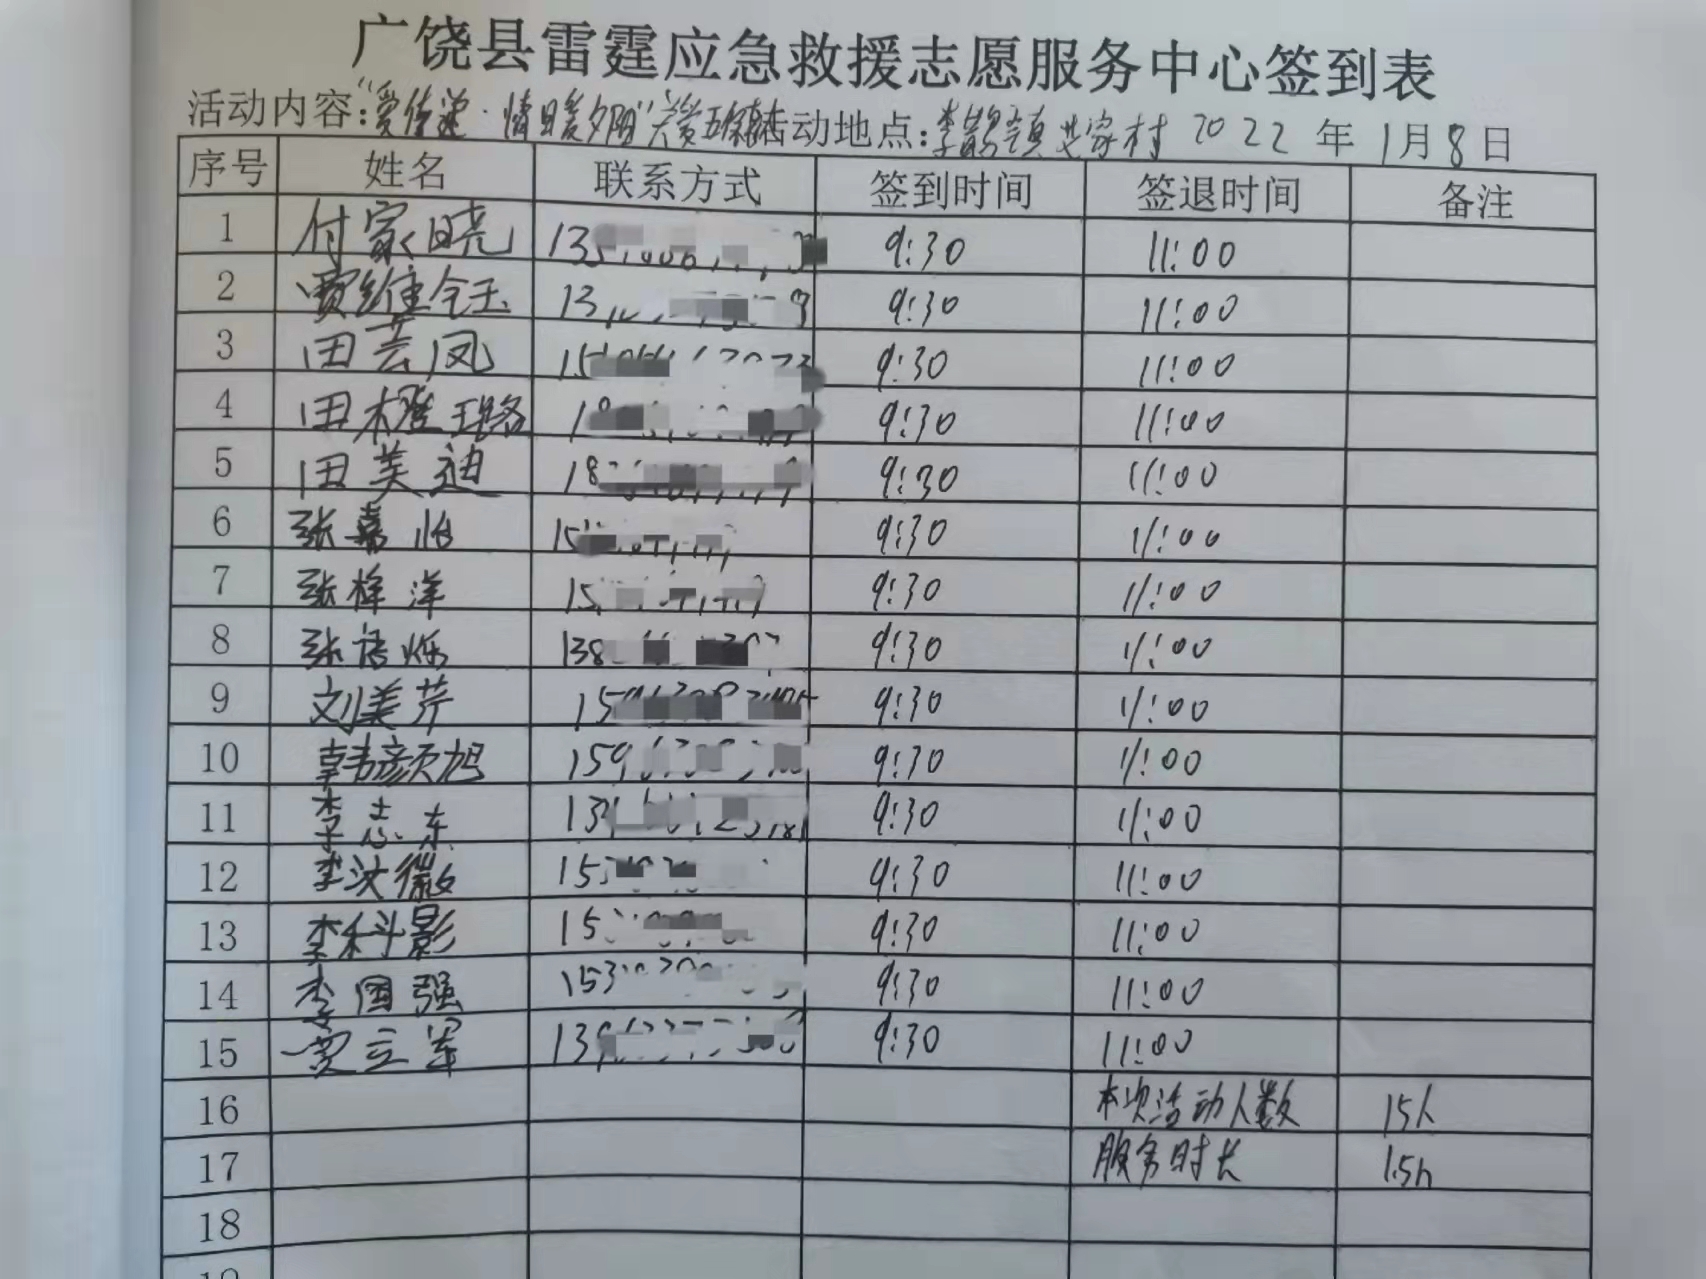 广饶县雷霆应急救援志愿服务中心签到表
活动内容:"爱传递·情暖夕阳"关爱 活动地点:李鹊镇艾家村 2022年1月8日
序号 姓名 联系方式 签到时间 签退时间 备注
1 付家晓 13 9:30 11:00
2 贾维全玉 13 9:30 11:00
3 田芸凤 15 9:30 11:00
4 田 璐 18 9:30 11:00
5 田美迪 18 9:30 11:00
6 张嘉怡 15 9:30 11:00
7 张梓洋 15 9:30 11:00
8 张语烁 138 9:30 11:00
9 刘美芹 15 9:30 11:00
10 韩颜旭 159 9:30 11:00
11 李志东 13 9:30 11:00
12 李汶徽 153 9:30 11:00
13 李科影 15 9:30 11:00
14 李国强 153 9:30 11:00
15 贾立军 139 9:30 11:00
16 本次活动人数 15人
17 服务时长 1.5h
18